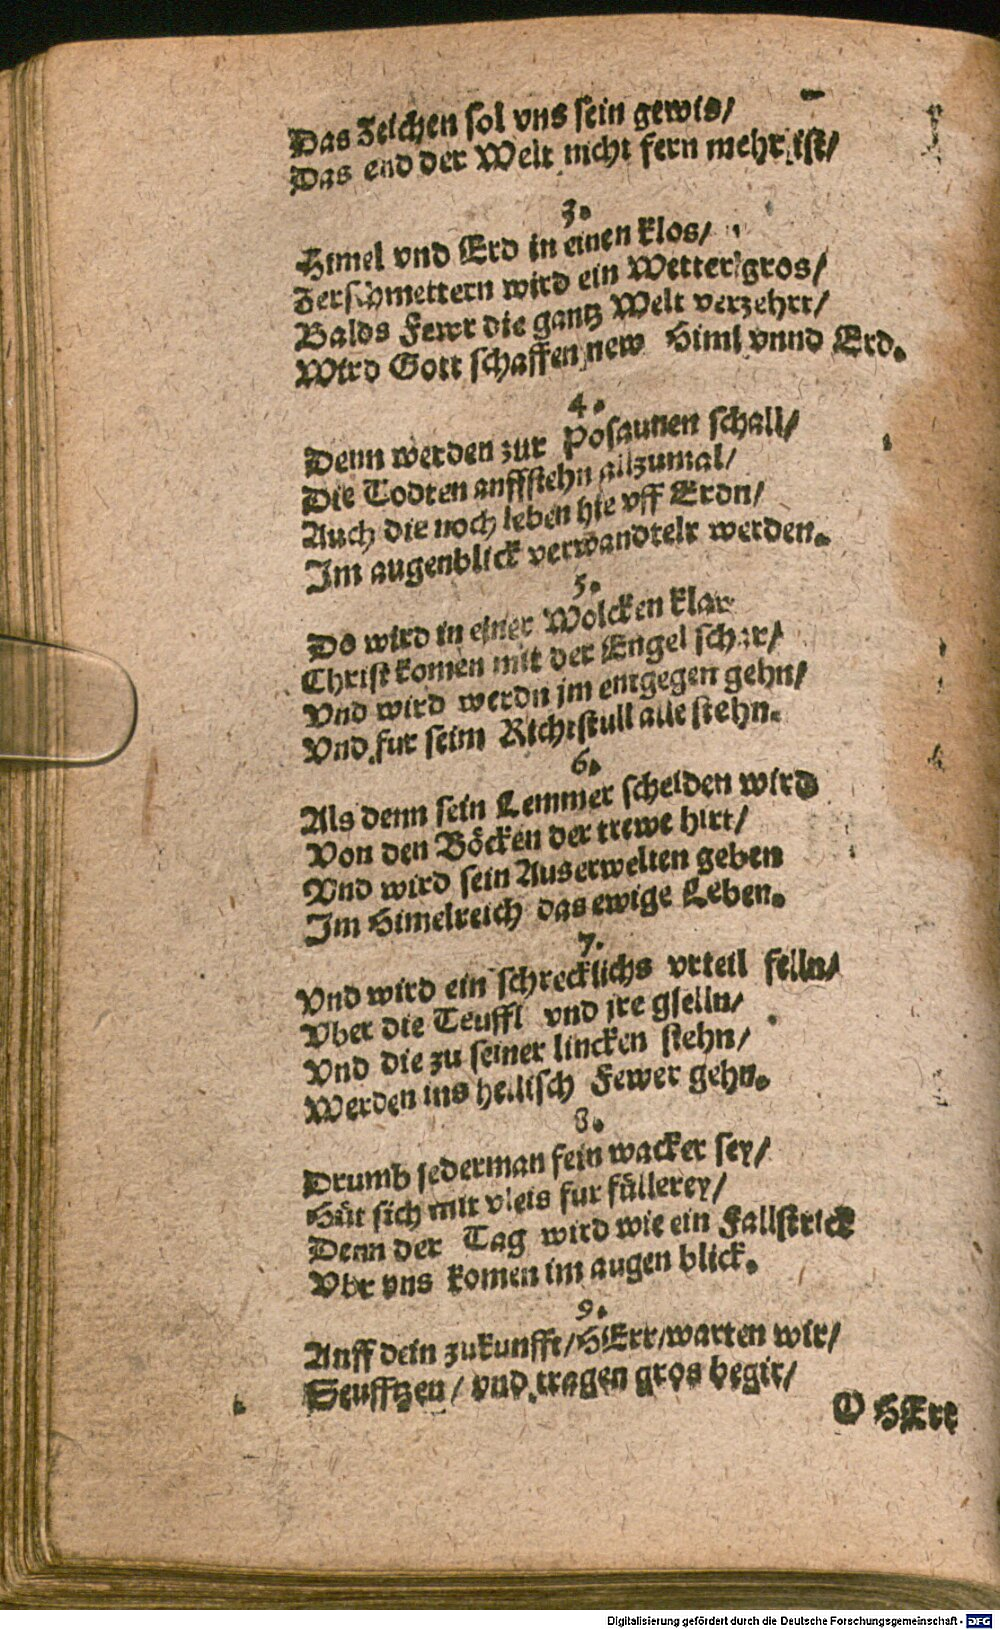 Das Zeichen sol vns sein gewis/
Das end der Welt nicht fern mehr ist/
3.
Himel vnd Erd in einen klos/
Zerschmettern wird ein Wetter gros/
Balds Fewr die gantz Welt verzehrt/
Wird Gott schaffen new Himl vnnd Erd.
4.
Denn werden zur Posaunen schall/
Die Todten auffstehn allzumal/
Auch die noch leben hie vff Erdn/
Im augenblick verwandtelt werden.
5.
Do wird in einer Wolcken klar
Christ komen mit der Engel schar/
Vnd wird werdn jm entgegen gehn/
Vnd fur seim Richtstull alle stehn.
6.
Als denn sein Lemmer scheiden wird
Von den Böcken der trewe hirt/
Vnd wird sein Auserwelten geben
Im Himelreich das ewige Leben.
7.
Vnd wird ein schrecklichs vrteil felln/
Vber die Teuffl vnd jre gselln/
Vnd die zu seiner lincken stehn/
Werden ins hellisch Fewer gehn.
8.
Drumb jederman fein wacker sey/
Hüt sich mit vleis fur füllerey/
Denn der Tag wird wie ein Fallstrick
Vbr vns komen im augen blick.
9.
Auff dein zukunfft/HErr/warten wir/
Seufftzen/ vnd tragen gros begir/
O HErr
Digitalisierung gefördert durch die Deutsche Forschungsgemeinschaft - DFG